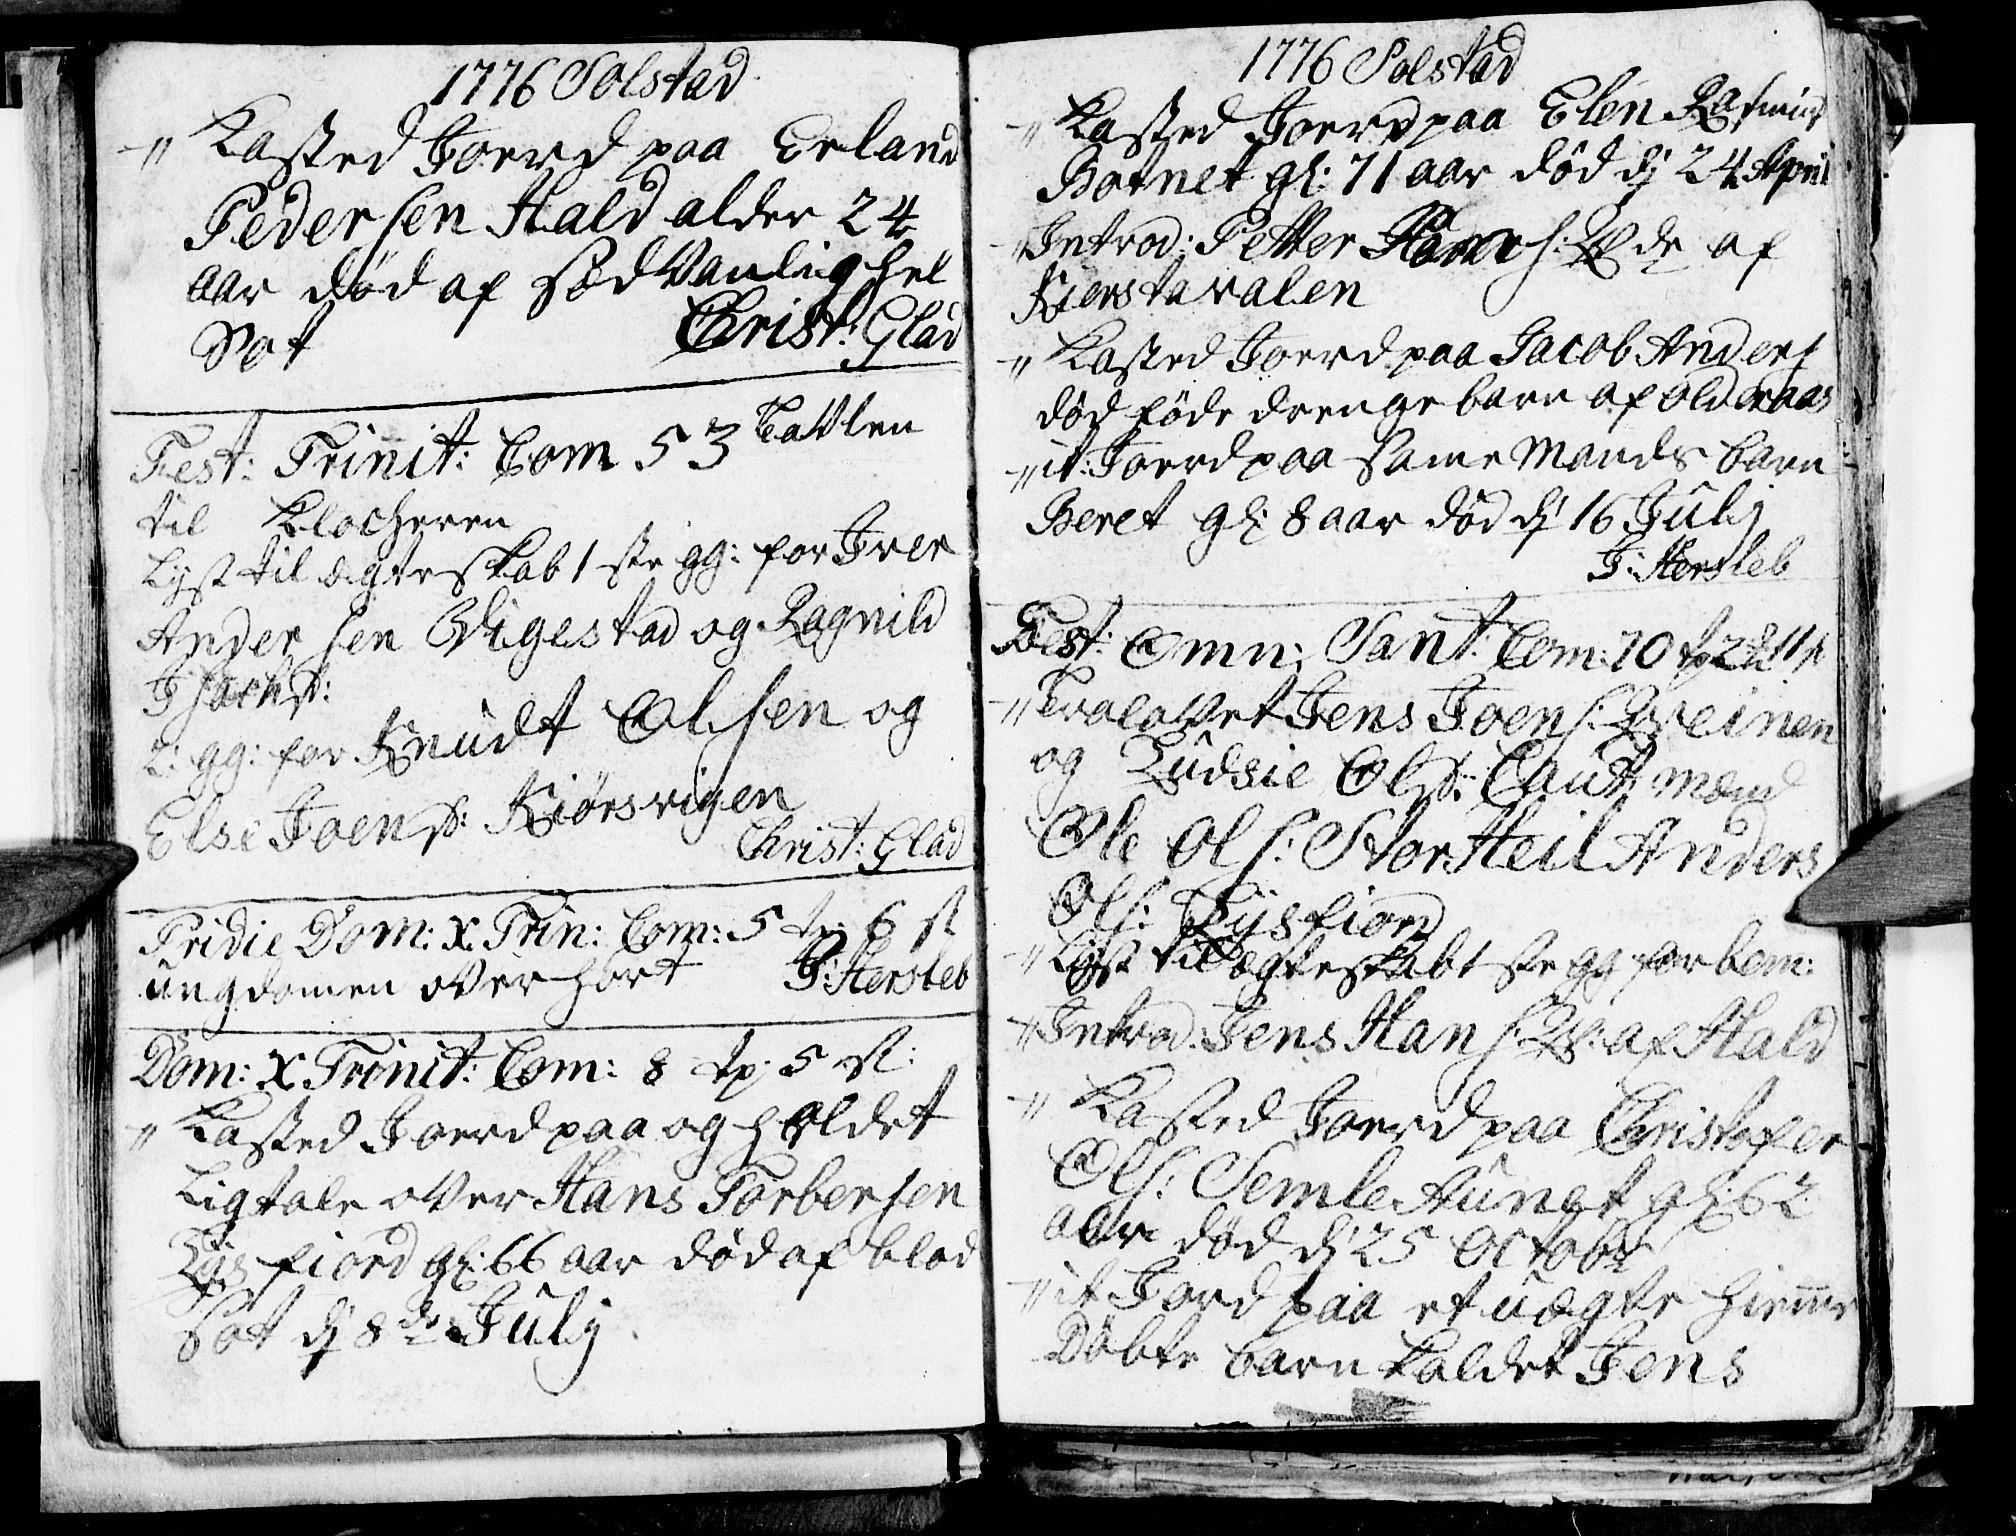 1776 Solstad
" Kasted Joerd paa Erland
Pedersen Hald alder 24
aar død af sødvanlig hel
Sot Christ: Glad
Fest: Trinit: Com 53 Tavlen
til Klocheren
Lyst til ægteskab 1 ste gg: for Iver
Andersen Vigestad og Ragnild
Isachsd:
2: gg: for Knudt Olsen og
Else Joensd: Kiørsvigen
Christ: Glad
Pridie Dom: X. Trin: Com: 5 tp: 6 st
ungdomen over hørt J: Hersleb
Dom: X Trinit: Com: 8 tp: 5 st:
" Kasted Joerd paa og holdet
Ligtale over Hans Torbersen
Lysfiord gl: 66 aar død af blod
Sot dj 8de Julj
1776 Solstad
" Kasted Joerd paa Elen Rasmusd
Botnet gl: 71 aar død dj 24 April
" Introd: Petter Hans: af
Kierstavalen
" Kasted Joerd paa Jacob Anders
død føde drenge barn af Olderaas
" it: Joerd paa same Mands barn
Beret gl: 8 aar død dj 16 Julj
J: Hersleb
Fest: Omn: Sant: Com: 10 tp
" Trolovet Jens Joens: Qveinen
og Lüdsie Olsd: Caut mænd
Ole Ols: Stor Heil Anders
Ols: Lysfiord
" Lyst til ægteskab 1 ste gg for bem:
" Introd: Jens Hans: af Hald
" Kasted Joerd paa Christofer
Ols: Semle Aunet gl: 62
aar død dj 25 Octobr
" it Jord paa et uægte hieme
Døbte barn kaldet Jens